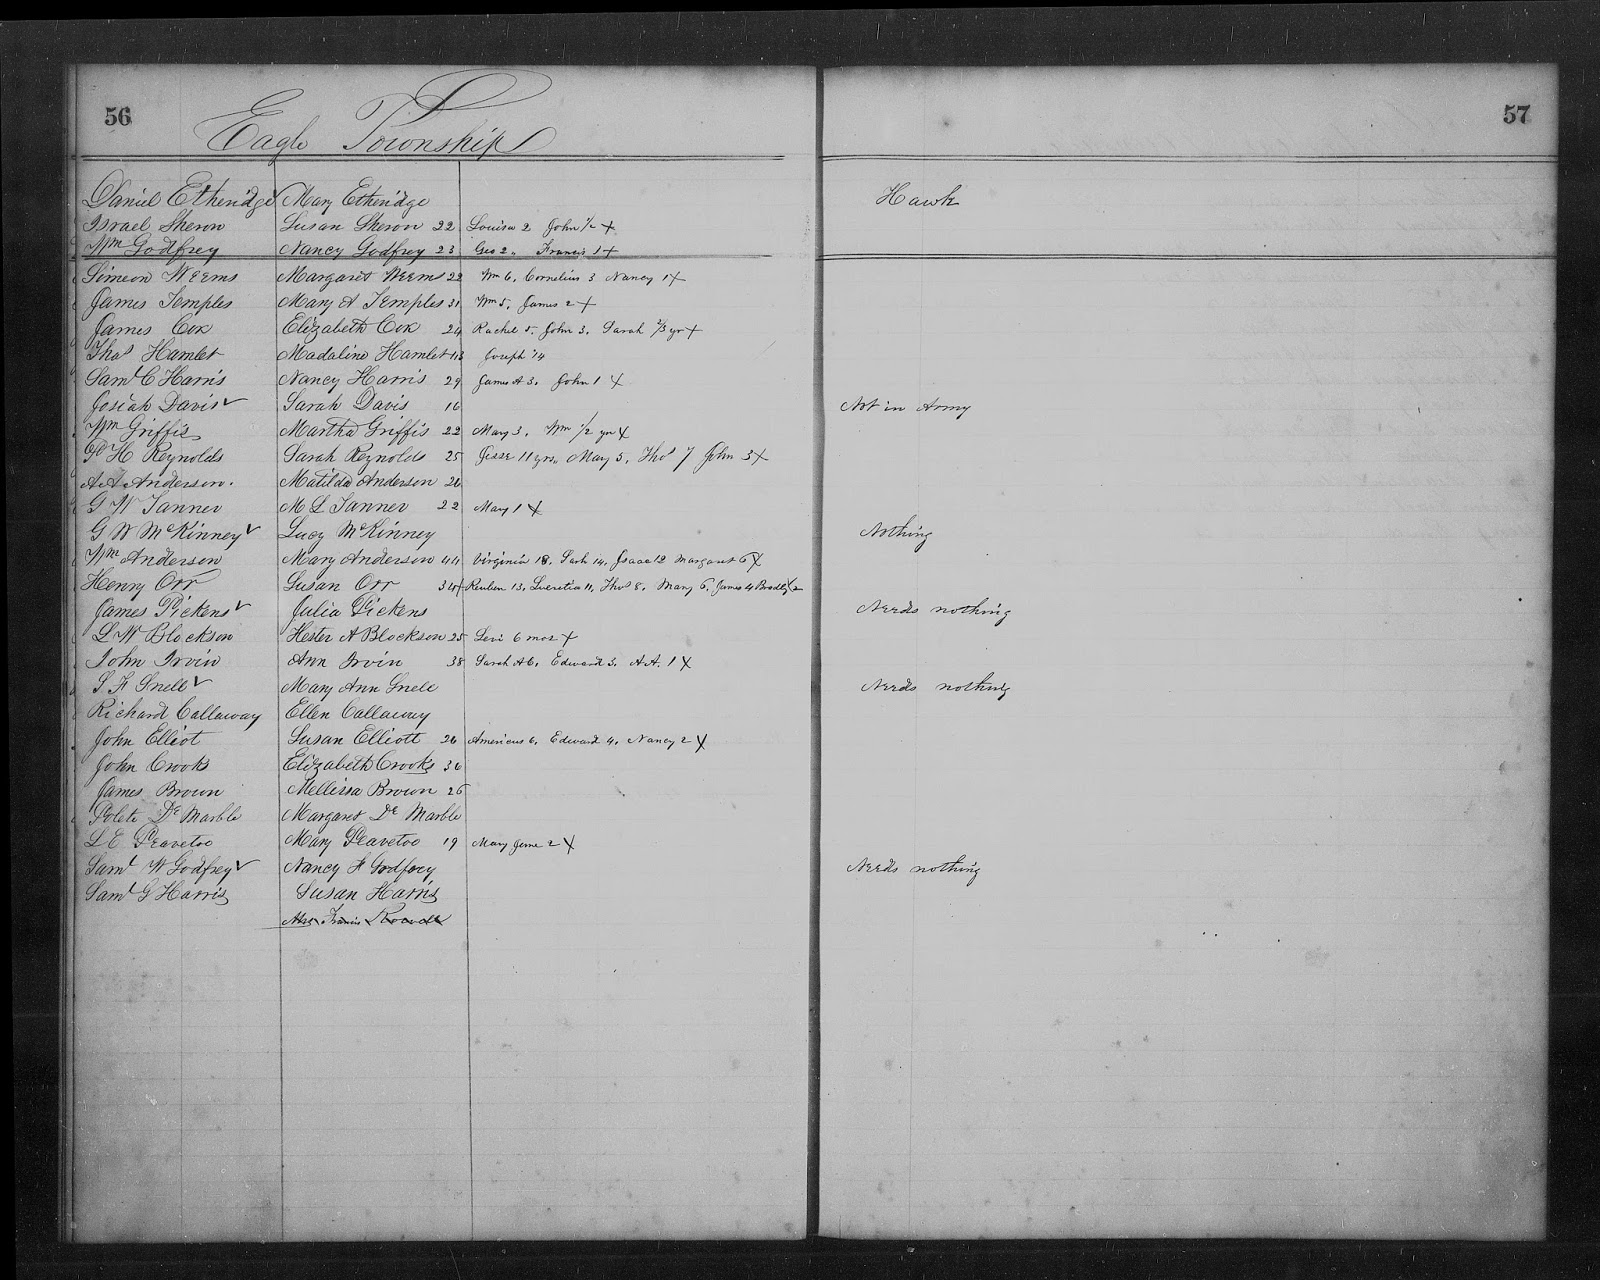 56
57
Eagle Township
Daniel Etheridge ✓ Mary Etheridge Hawk
Israel Skeron Susan Skeron 22 Louisa 2 John 1/2 +
Wm Godfrey Nancy Godfrey 23 Geo 2 Francis 1 +
Simeon Weems Margaret Weems 22 Wm 6. Cornelius 3 Nancy 1 +
James Temples Mary A Temples 31 Wm 5. James 2 +
James Cox Elizabeth Cox 24 Rachel 5. John 3. Sarah 2/3 yr +
Thos Hamlet Madaline Hamlet 43 Joseph 14
Saml C Harris Nancy Harris 29 James A 3. John 1 +
Josiah Davis ✓ Sarah Davis 16 Not in Army
Wm Griffis Martha Griffis 22 Mary 3. Wm 1/2 yr +
P H Reynolds Sarah Reynolds 25 Jesse 11 yrs, Mary 5, Thos 7 John 3 +
A A Anderson. Matilda Anderson 26
G W Tanner M L Tanner 22 Mary 1 +
G W McKinney ✓ Lucy McKinney Nothing
Wm Anderson Mary Anderson 44 Virginia 18. Sarh 14. Isaac 12 Margaret 6 +
Henry Orr Susan Orr 34 Reuben 13. Lucretia 11. Thos 8. Mary 6. James 4 2
James Pickens ✓ Julia Pickens Needs nothing
L W Blockson Hester A Blockson 25 Levi 6 mos +
John Irvin Ann Irvin 38 Sarah A 6. Edward 3. A A. 1 +
S F Snell ✓ Mary Ann Snell Needs nothing
Richard Callaway Ellen Callaway
John Elliot Susan Elliott 26 Americus 6. Edward 4. Nancy 2 +
John Crooks Elizabeth Crooks 36
James Brown Mellissa Brown 25
De Marble Margaret De Marble
L E Peavetoe Mary Peavetoe 19 Mary Jane 2 +
Saml W Godfrey ✓ Nancy F Godfrey Needs nothing
Saml G Harris Susan Harris
Francis